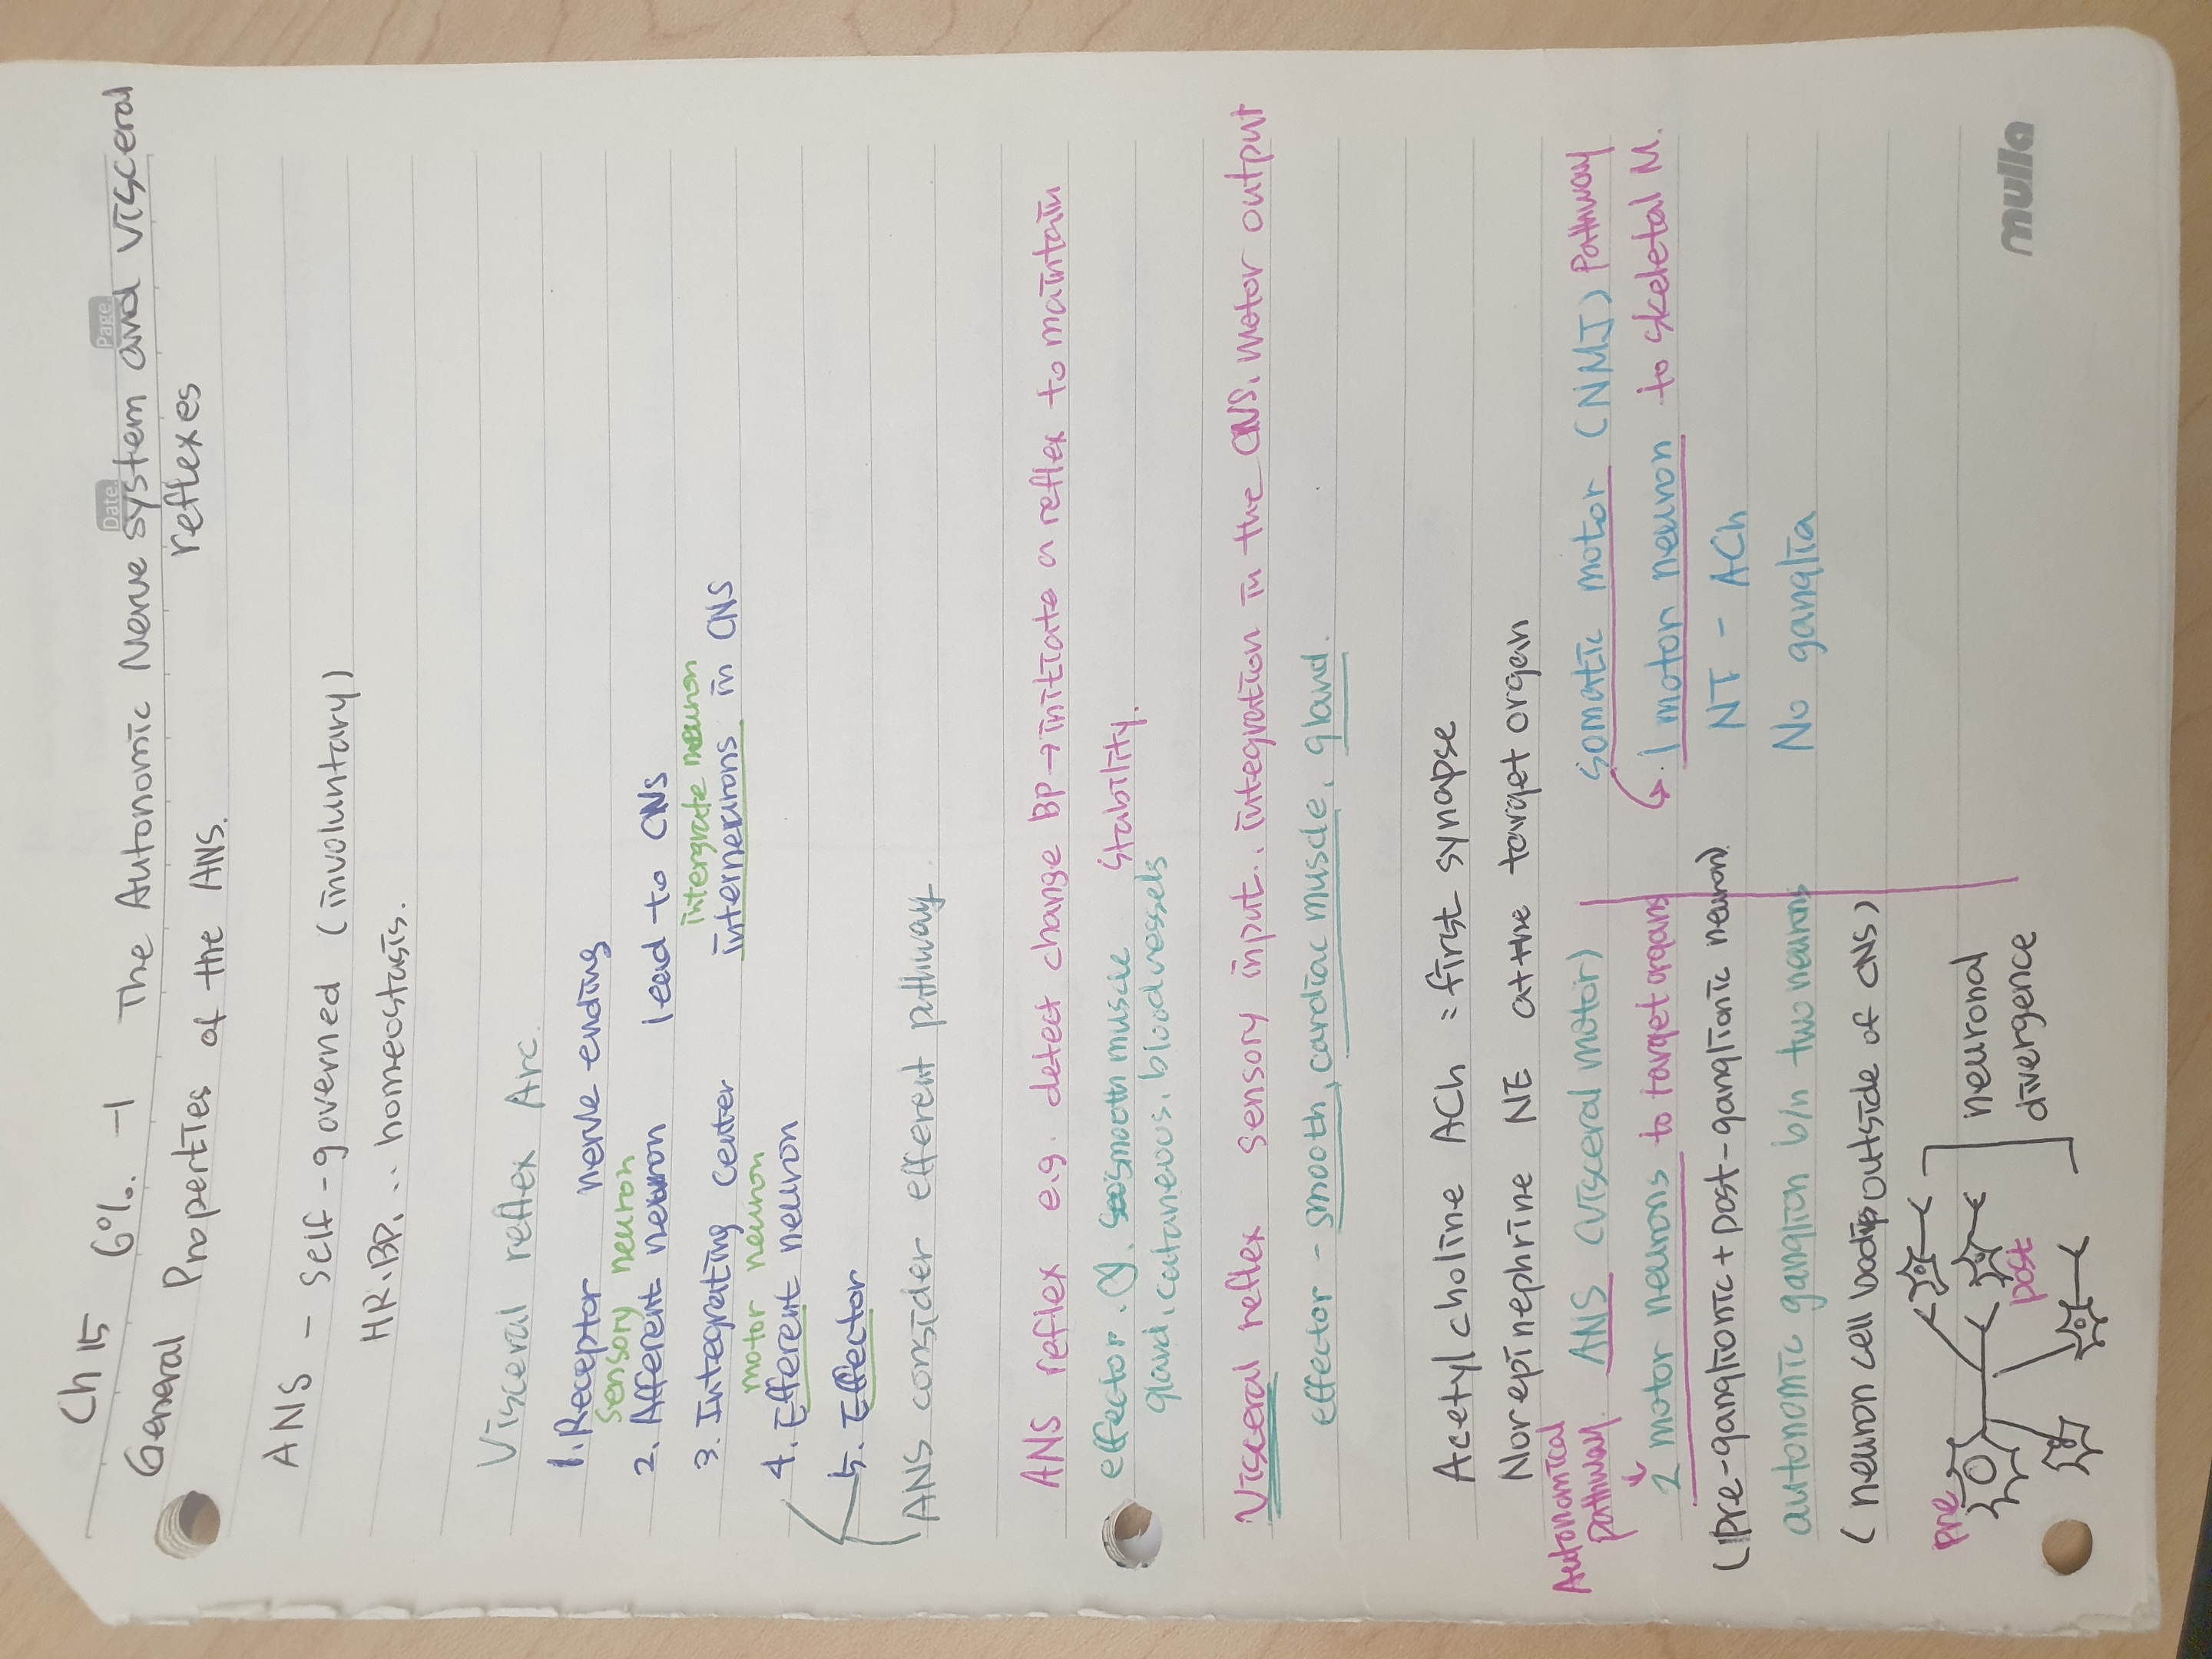 Date. Page.
Ch 15 6%. -1 The Autonomic Nerve system and visceral
reflexes
General Properties of the ANS.
ANS - Self-governed (involuntary)
HR. BP. .. homeostasis.
Visceral reflex Arc.
1. Receptor nerve ending
sensory neuron
2. Afferent neuron lead to CNS
intergrate neuron
3. Integrating center interneurons in CNS
motor neuron
4. Efferent neuron
5. Effector
ANS consider efferent pathway
ANS reflex e.g. detect change BP → initiate a reflex to maintain
stability.
effector. smooth muscle
gland, cutaneous, blood vessels
Visceral reflex sensory input.. integration in the CNS. Motor output
effector - smooth, cardiac muscle, gland.
Acetylcholine ACh = first synapse
Norepinephrine NE at the target organ
Autonomical
pathway. ANS (visceral motor)
2 motor neurons to target organs
(pre-ganglionic + post-ganglionic neuron)
autonomic ganglion b/n two neurons
(neuron cell bodies outside of CNS)
Somatic motor (NMJ) Pathway
1 motor neuron to skeletal M.
NT - ACh
No ganglia
pre
post
neuronal
divergence
mulla